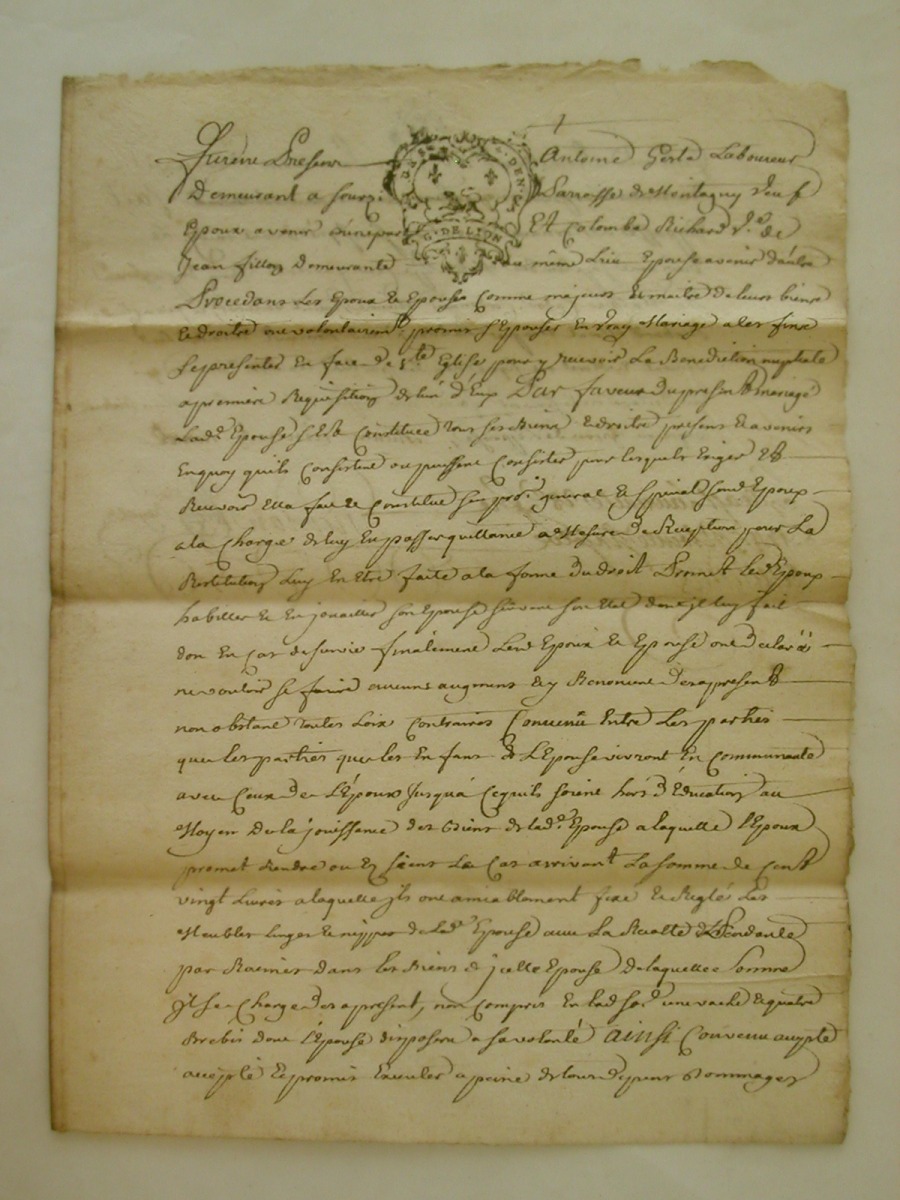 Furent Presens Antoine Gerle Laboureur
Demeurant a Sourzi Parroisse de Montagny Veuf
Epoux avenir d'une part Et Colombe Richard Vve de
G. DE LYON
Jean fillon Demeurante au même Lieu Epouse avenir d'autre
Procedans Les Epoux & Epouse Comme majeurs & maitre de leurs biens
& droits ont volontairemt promis s'Epouser En vray Mariage a les fins
se presenter En face de Ste Eglise pour y recevoir La Benediction nuptiale
a premiere Requisition de l'un d'Eux Par faveur du present mariage
Lade Epouse s'Est Constituée tous ses Biens & droits presens & avenirs
En quoy qu'ils Consistent ou puissent Consister pour lesquels Exiger Et
Recevoir Elle fait & Constitue son procr general & special sond Epoux
a la Charge de luy En passer quittance a Mesure de Reception pour La
Restitution Luy En Etre faite a la forme du droit Promet led Epoux
habiller & En joüailler son Epouse suivant son Etat dont jl luy fait
don En Cas de survie finalement Lesd Epoux & Epouse ont declaré
ne vouloir se faire aucuns augment & y Renoncent des apresent
non obstant toutes Loix Contraires Convenu Entre Les parties
que les parties que les Enfans de L'Epouse vivront En Communauté
avec Ceux de L'Epoux jusqua Ce quils soient hors d'Education au
Moyen de la jouissance des Biens de lade Epouse a laquelle l'Epoux
promet Rendre ou Es siens Le Cas arrivant La somme de Cent
vingt Livres a laquelle jls ont amiablement fixé & Reglé Les
Meubles linges & nippes de Lade Epouse avec La Recolte Pendante
par Racines dans les Biens d'jcelle Epouse de laquelle somme
jl se Charge des apresent, non Compris En lad some une vache & quatre
Brebis dont l'Epouse disposera a sa volonté Ainsi Convenu
accepté & promis Executer a peine de tous depens dommages